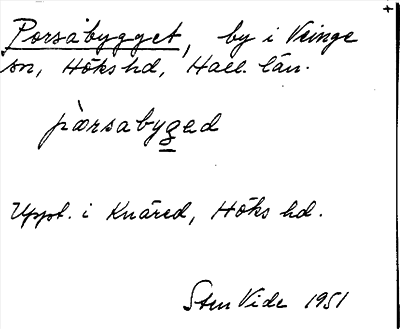 +
Porsabygget, by i Veinge
sn, Höks hd, Hall. län.
pærsabyged
Uppt. i Knäred, Höks hd.
Sten Vide 1951